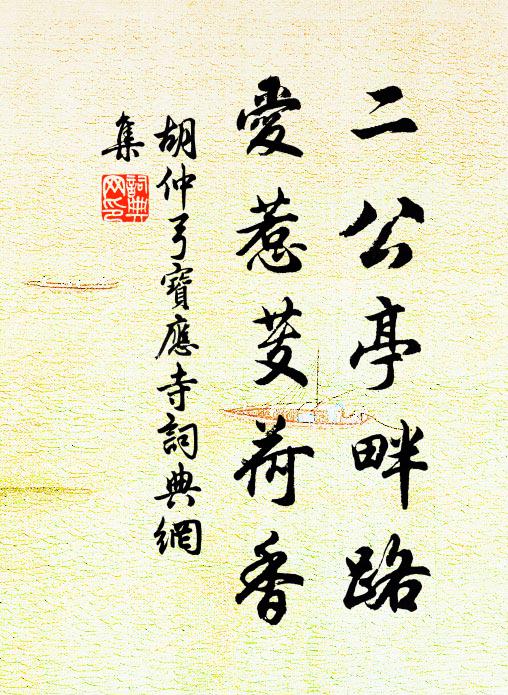 二公亭畔路
愛惹芰荷香
胡仲弓寶應寺詞典網
集
詞典
网印